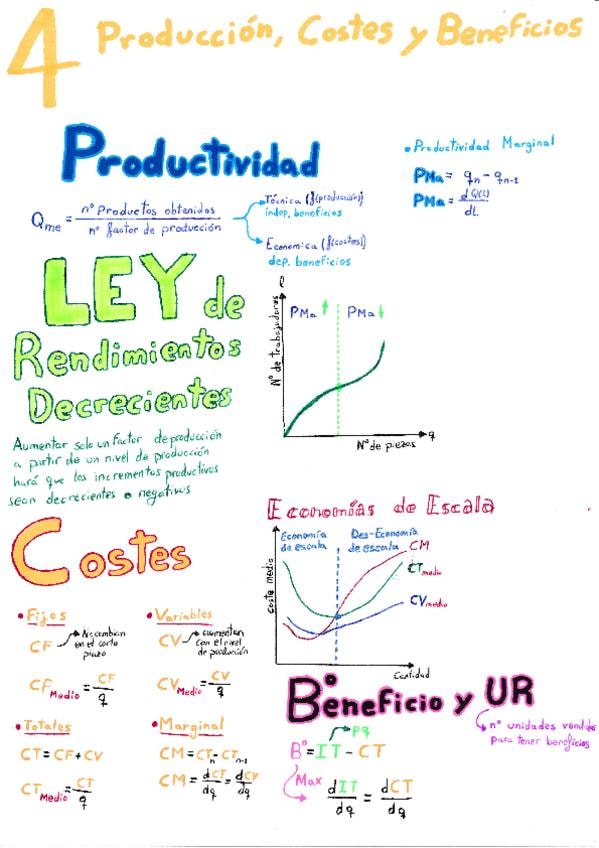 4 Producción, Costes y Beneficios
Productividad
Qme = nº Productos obtenidos / nº factor de producción
Técnica (f(producción))
indep. beneficios
Economica (f(costes))
dep. beneficios
• Productividad Marginal
PMa = qn - qn-1
PMa = dQ(L) / dL
LEY de
Rendimientos
Decrecientes
Aumentar solo un factor de producción
a partir de un nivel de producción
hará que los incrementos productivos
sean decrecientes o negativos
Nº de trabajadores
PMa ↑
PMa ↓
Nº de piezas
q
Costes
• Fijos
CF → No cambian
en el corto
plazo
CF Medio = CF / q
• Variables
CV → aumentan
con el nivel
de producción
CV Medio = CV / q
• Totales
CT = CF + CV
CT Medio = CT / q
• Marginal
CM = CTn - CTn-1
CM = dCT / dq = dCV / dq
Economías de Escala
Economía
de escala
Des-Economía
de escala
Coste medio
CM
CT medio
CV medio
Cantidad
Bº eneficio y UR
nº unidades vendidas
para tener beneficios
pq
Bº = IT - CT
Max
dIT / dq = dCT / dq